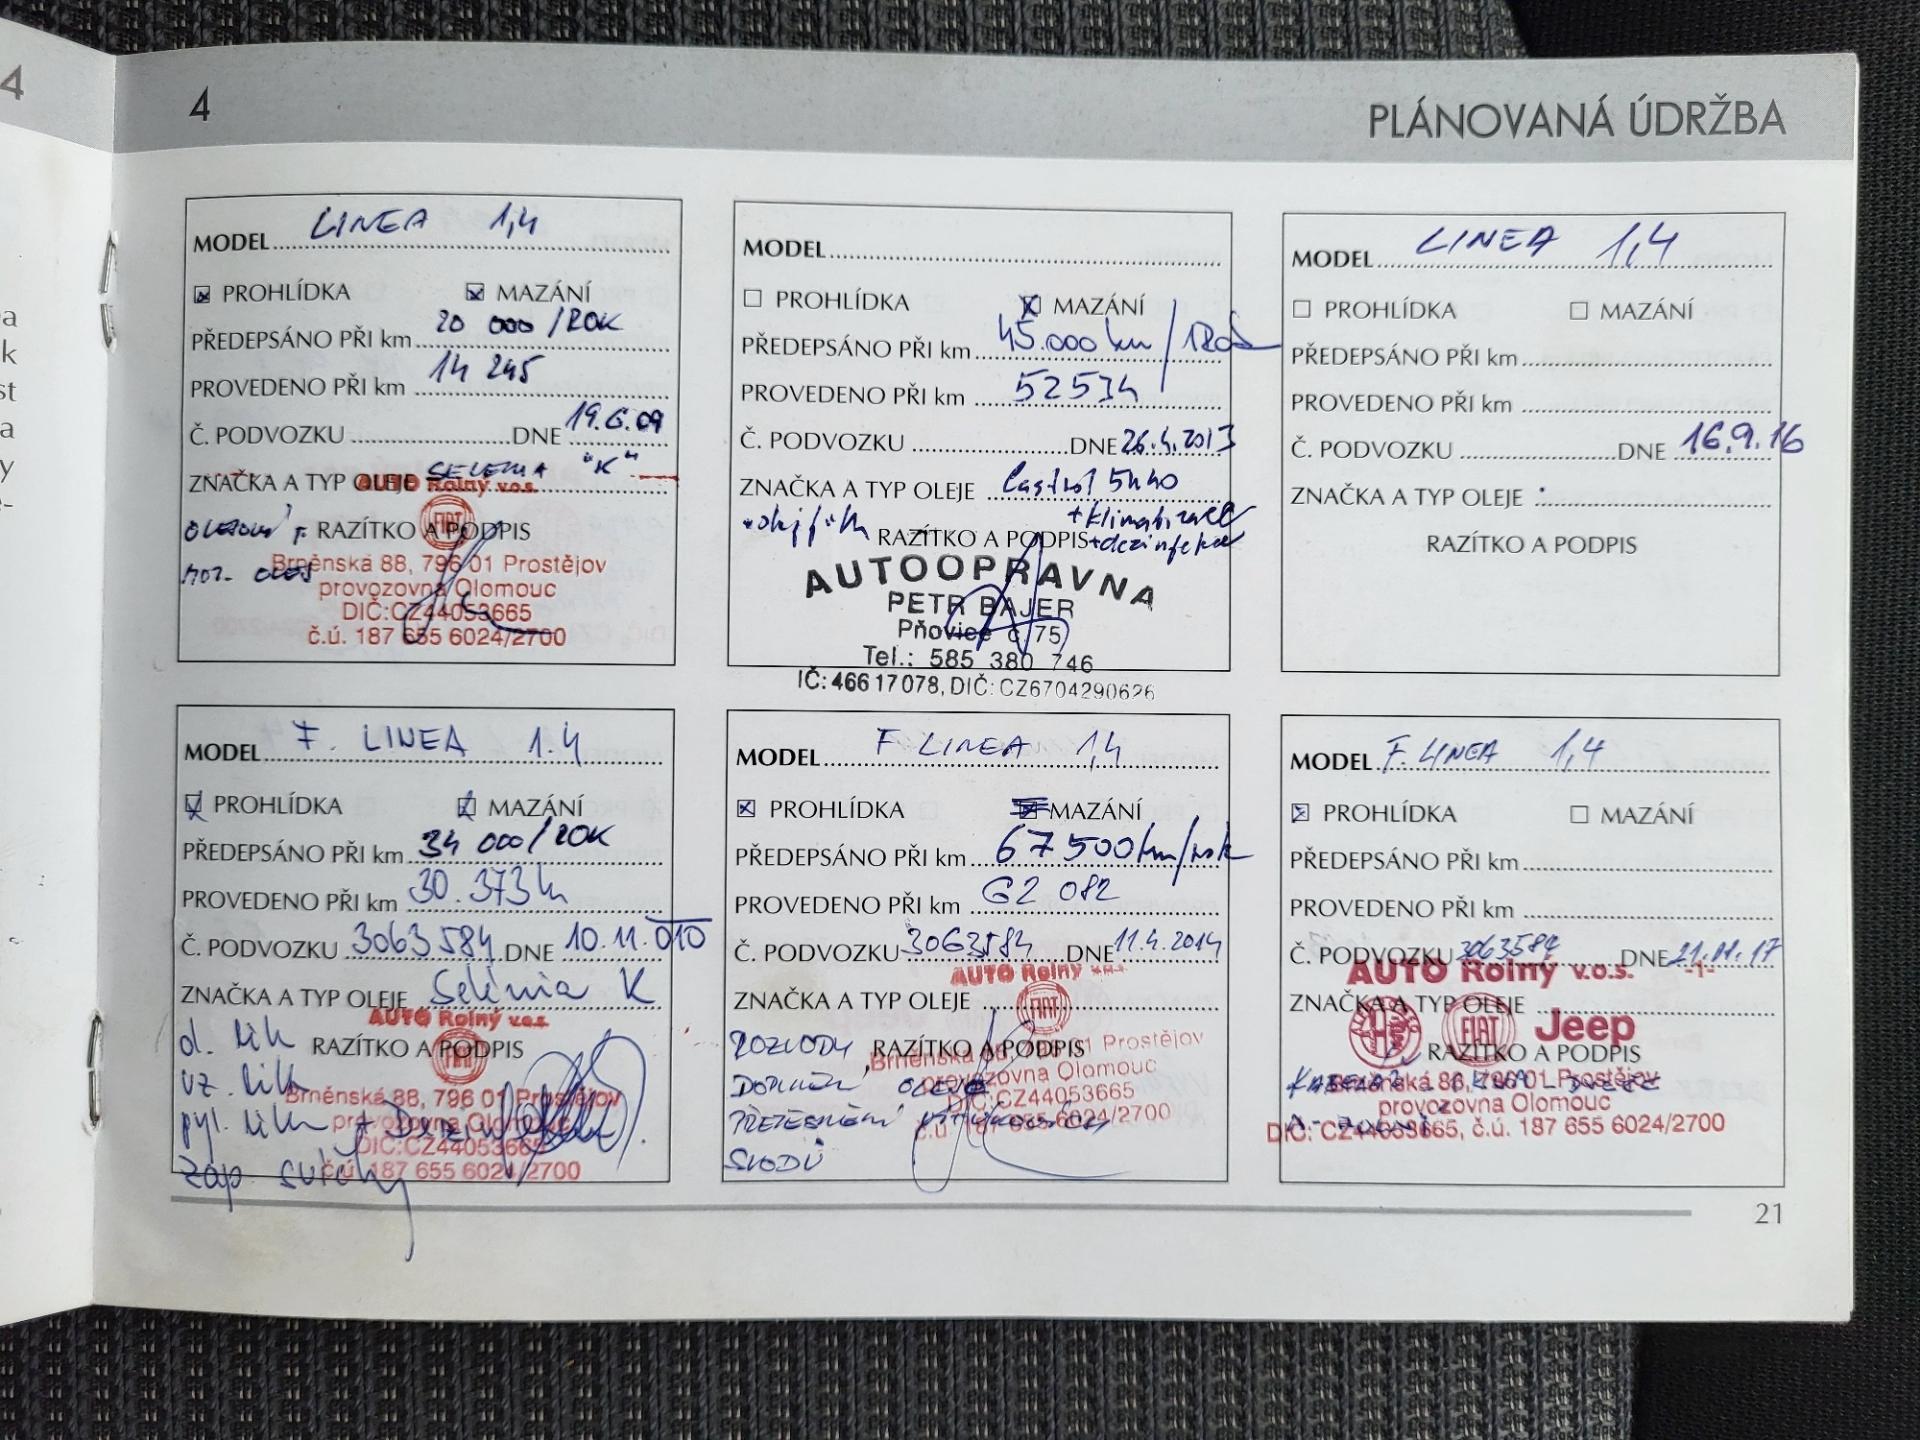 4
4
PLÁNOVANÁ ÚDRŽBA
MODEL LINEA 1,4
PROHLÍDKA MAZÁNÍ
PŘEDEPSÁNO PŘI km 20 000/ROK
PROVEDENO PŘI km 14 245
Č. PODVOZKU DNE 19.6.09
ZNAČKA A TYP OLEJE SELENIA "K"
AUTO Rolný v.o.s.
FIAT
RAZÍTKO A PODPIS
Brněnská 88, 796 01 Prostějov
provozovna Olomouc
DIČ:CZ44053665
č.ú. 187 655 6024/2700
MODEL
PROHLÍDKA MAZÁNÍ
PŘEDEPSÁNO PŘI km 45.000 km/1ROK
PROVEDENO PŘI km 52534
Č. PODVOZKU DNE 26.4.2013
ZNAČKA A TYP OLEJE Castrol 5W40
RAZÍTKO A PODPIS
+klimatizace
+dezinfekce
AUTOOPRAVNA
PETR BAJER
Pňovice č.75
Tel.: 585 380 746
IČ: 46617078, DIČ: CZ6704290626
MODEL LINEA 1,4
PROHLÍDKA MAZÁNÍ
PŘEDEPSÁNO PŘI km
PROVEDENO PŘI km
Č. PODVOZKU DNE 16.9.16
ZNAČKA A TYP OLEJE
RAZÍTKO A PODPIS
MODEL F. LINEA 1.4
PROHLÍDKA MAZÁNÍ
PŘEDEPSÁNO PŘI km 34 000/ROK
PROVEDENO PŘI km 30.373
Č. PODVOZKU 3063584 DNE 10.11.010
ZNAČKA A TYP OLEJE Selenia K
AUTO Rolný v.o.s.
FIAT
RAZÍTKO A PODPIS
Brněnská 88, 796 01 Prostějov
provozovna Olomouc
DIČ:CZ44053665
č.ú. 187 655 6024/2700
zap. svíčky
MODEL F LINEA 1,4
PROHLÍDKA MAZÁNÍ
PŘEDEPSÁNO PŘI km 67 500km/rok
PROVEDENO PŘI km 62 082
Č. PODVOZKU 3063584 DNE 11.4.2014
AUTO Rolný v.o.s.
ZNAČKA A TYP OLEJE
FIAT
ROZVODY, RAZÍTKO A PODPIS
Brněnská 88, 796 01 Prostějov
provozovna Olomouc
DIČ:CZ44053665
č.ú. 187 655 6024/2700
PŘETĚSNĚNÍ VÝFUKOVÝCH
SVODŮ
MODEL F. LINEA 1,4
PROHLÍDKA MAZÁNÍ
PŘEDEPSÁNO PŘI km
PROVEDENO PŘI km
Č. PODVOZKU 3063584 DNE 21.11.17
AUTO Rolný v.o.s. -1-
ZNAČKA A TYP OLEJE
FIAT Jeep
RAZÍTKO A PODPIS
Brněnská 88, 796 01 Prostějov
provozovna Olomouc
DIČ: CZ44053665, č.ú. 187 655 6024/2700
21